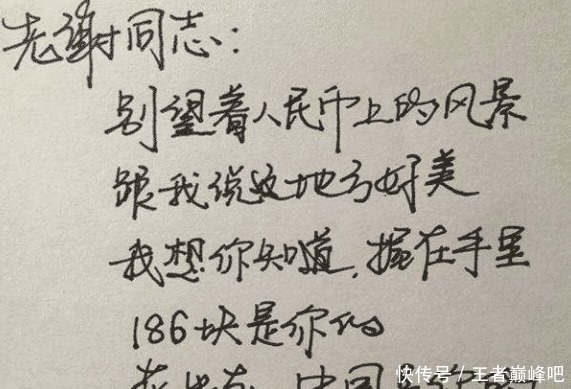 老谢同志:
别望着人民币上的风景
跟我说这地方好美
我想你知道,握在手里
186块是你的
中国
快传号/王者巅峰吧